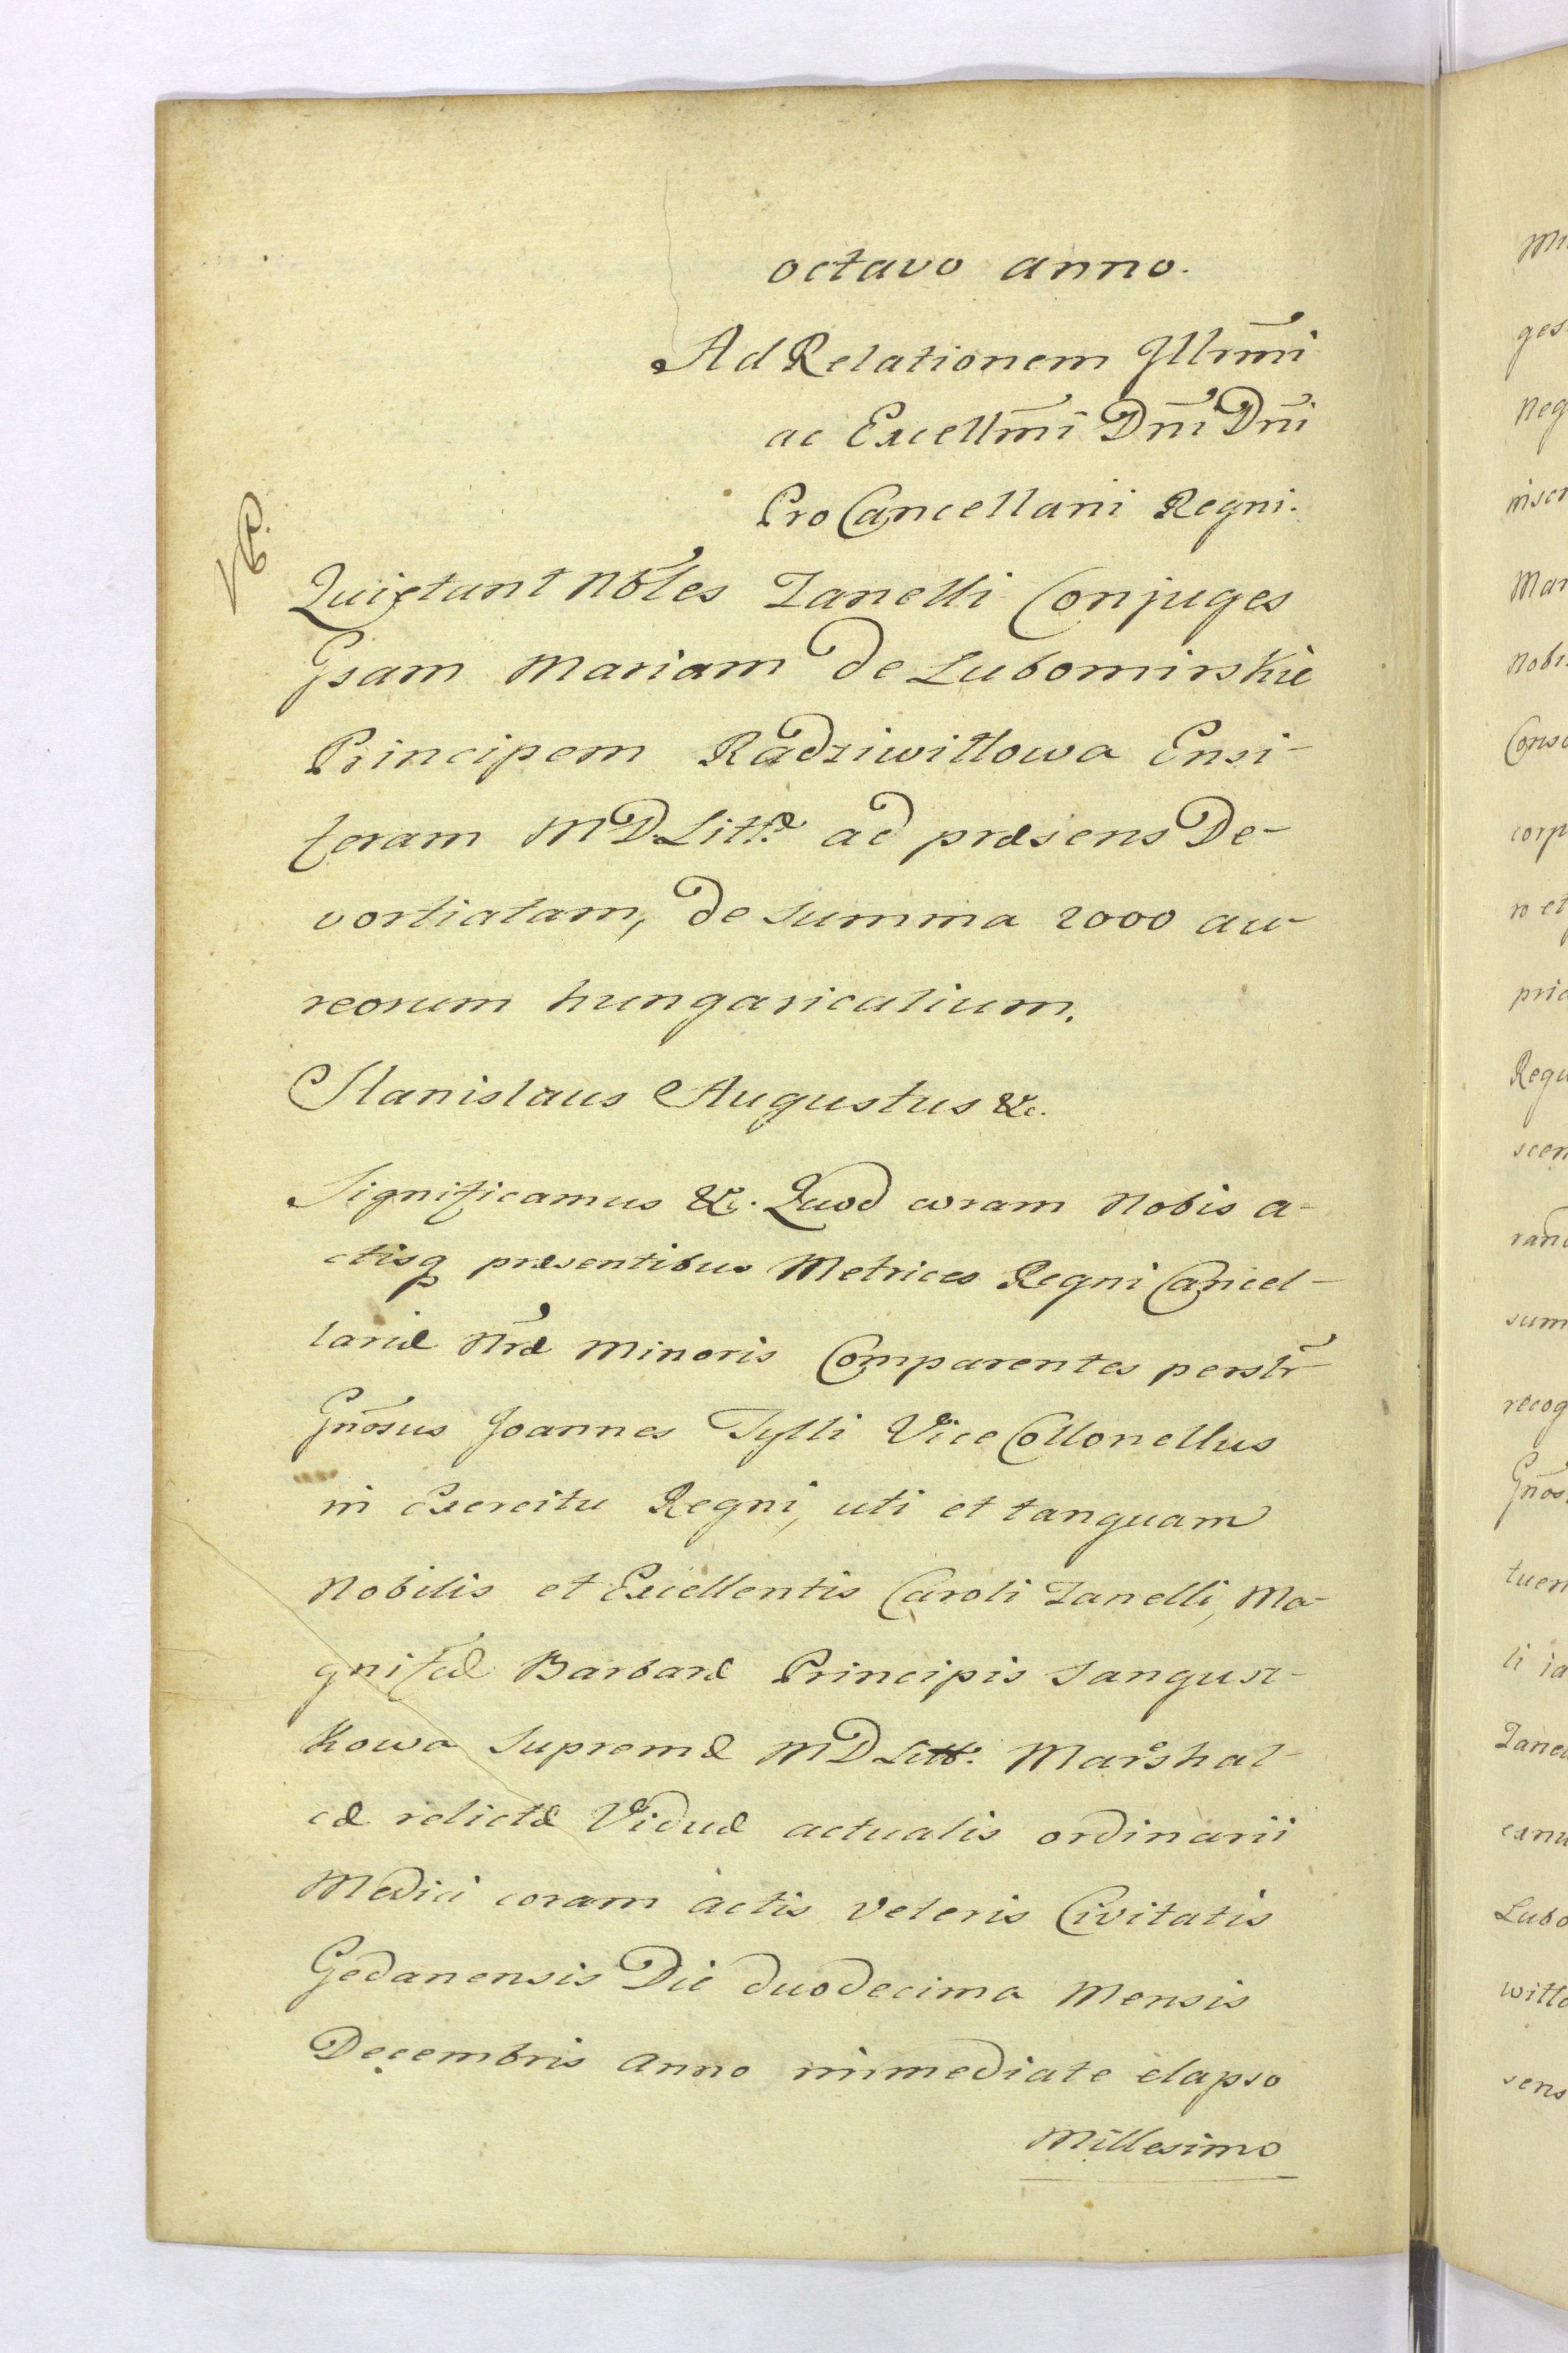 octavo anno.
Ad Relationem Illrmi
ac Excellmi Dni Dni
Pro Cancellarii Regni.
Quietant Nobles Zanelli Conjuges
Gsam Mariam de Lubomirskie
Principem Radziwiłłowa Ensi-
feram MD. Littæ ad præsens De-
vortiatam, de summa 2000 au-
reorum hungaricalium.
Stanislaus Augustus &c.
Significamus &c. Quod coram Nobis a-
ctisq præsentibus Metrices Regni Cancel-
lariæ Nræ Minoris Comparentes perslr
Gnosus Joannes Tylli Vice Collonellus
in Exercitu Regni, uti et tanquam
Nobilis et Excellentis Caroli Zanelli, Ma-
gnifcæ Barbaræ Principis Sangusz-
kowa Supremæ MD Litt. Marshal-
cæ relictæ Viduæ actualis ordinarii
Medici coram actis Veteris Civitatis
Gedanensis Die duodecima Mensis
Decembris Anno immediate elapso
Millesimo